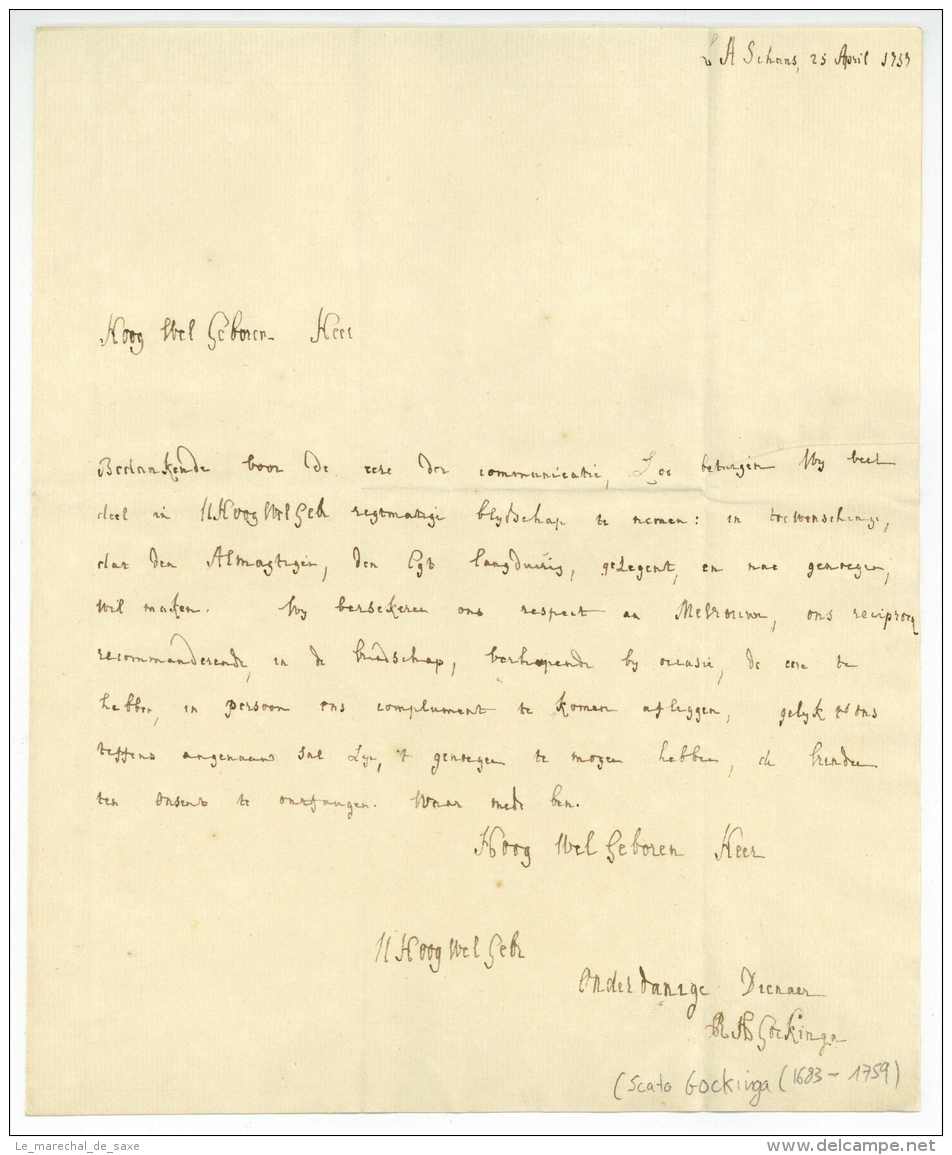 L A Schans, 25 April 1757
Hoog Wel Geboren Heer
Bedankende voor de eere der communicatie, Zoo betuigen Wy veel
deel in U Hoog Wel Geb regtmatige blydschap te nemen: in toewensching,
dat den Almagtigen, den Egt langduirig, gezegent, en nae genoegen,
Wil maken. Wy verseekeren ons respect an Mevrouwe, ons reciprocq
recommanderende, in de vrindschap, verhopende by occasie, de eere te
hebben, in persoon ons complument te komen afleggen, gelyk ons
teffens angenaam sal Zyn, 't genoegen te mogen hebben, de vrinden
ten onsent te ontfangen. Waar mede ben.
Hoog Wel Geboren Heer
U Hoog Wel Geb
Onderdanige Dienaer
Gockinga
(Scato Gockinga (1683 - 1759)
Le_marechal_de_saxe
delcampe.net